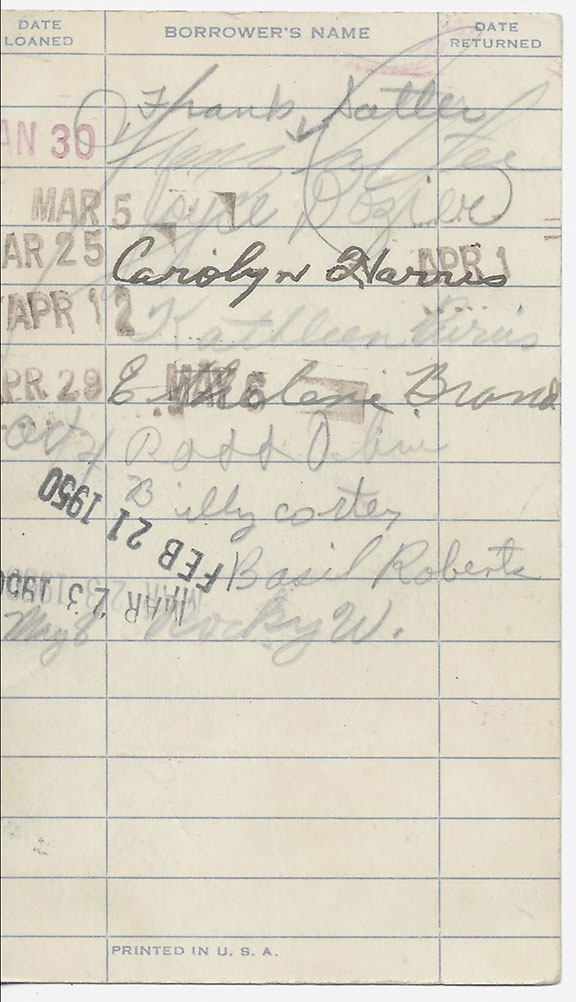 DATE LOANED BORROWER'S NAME DATE RETURNED
Frank Satler
AN 30
MAR 5 Joyce Dozier
AR 25 Carolyn Harris APR 1
APR 12 Kathleen
PR 29 MAY 6
Oct 4
FEB 21 1950 Billy
Basil Roberts
MAR 23 1950
May 8 Rocky W.
PRINTED IN U. S. A.